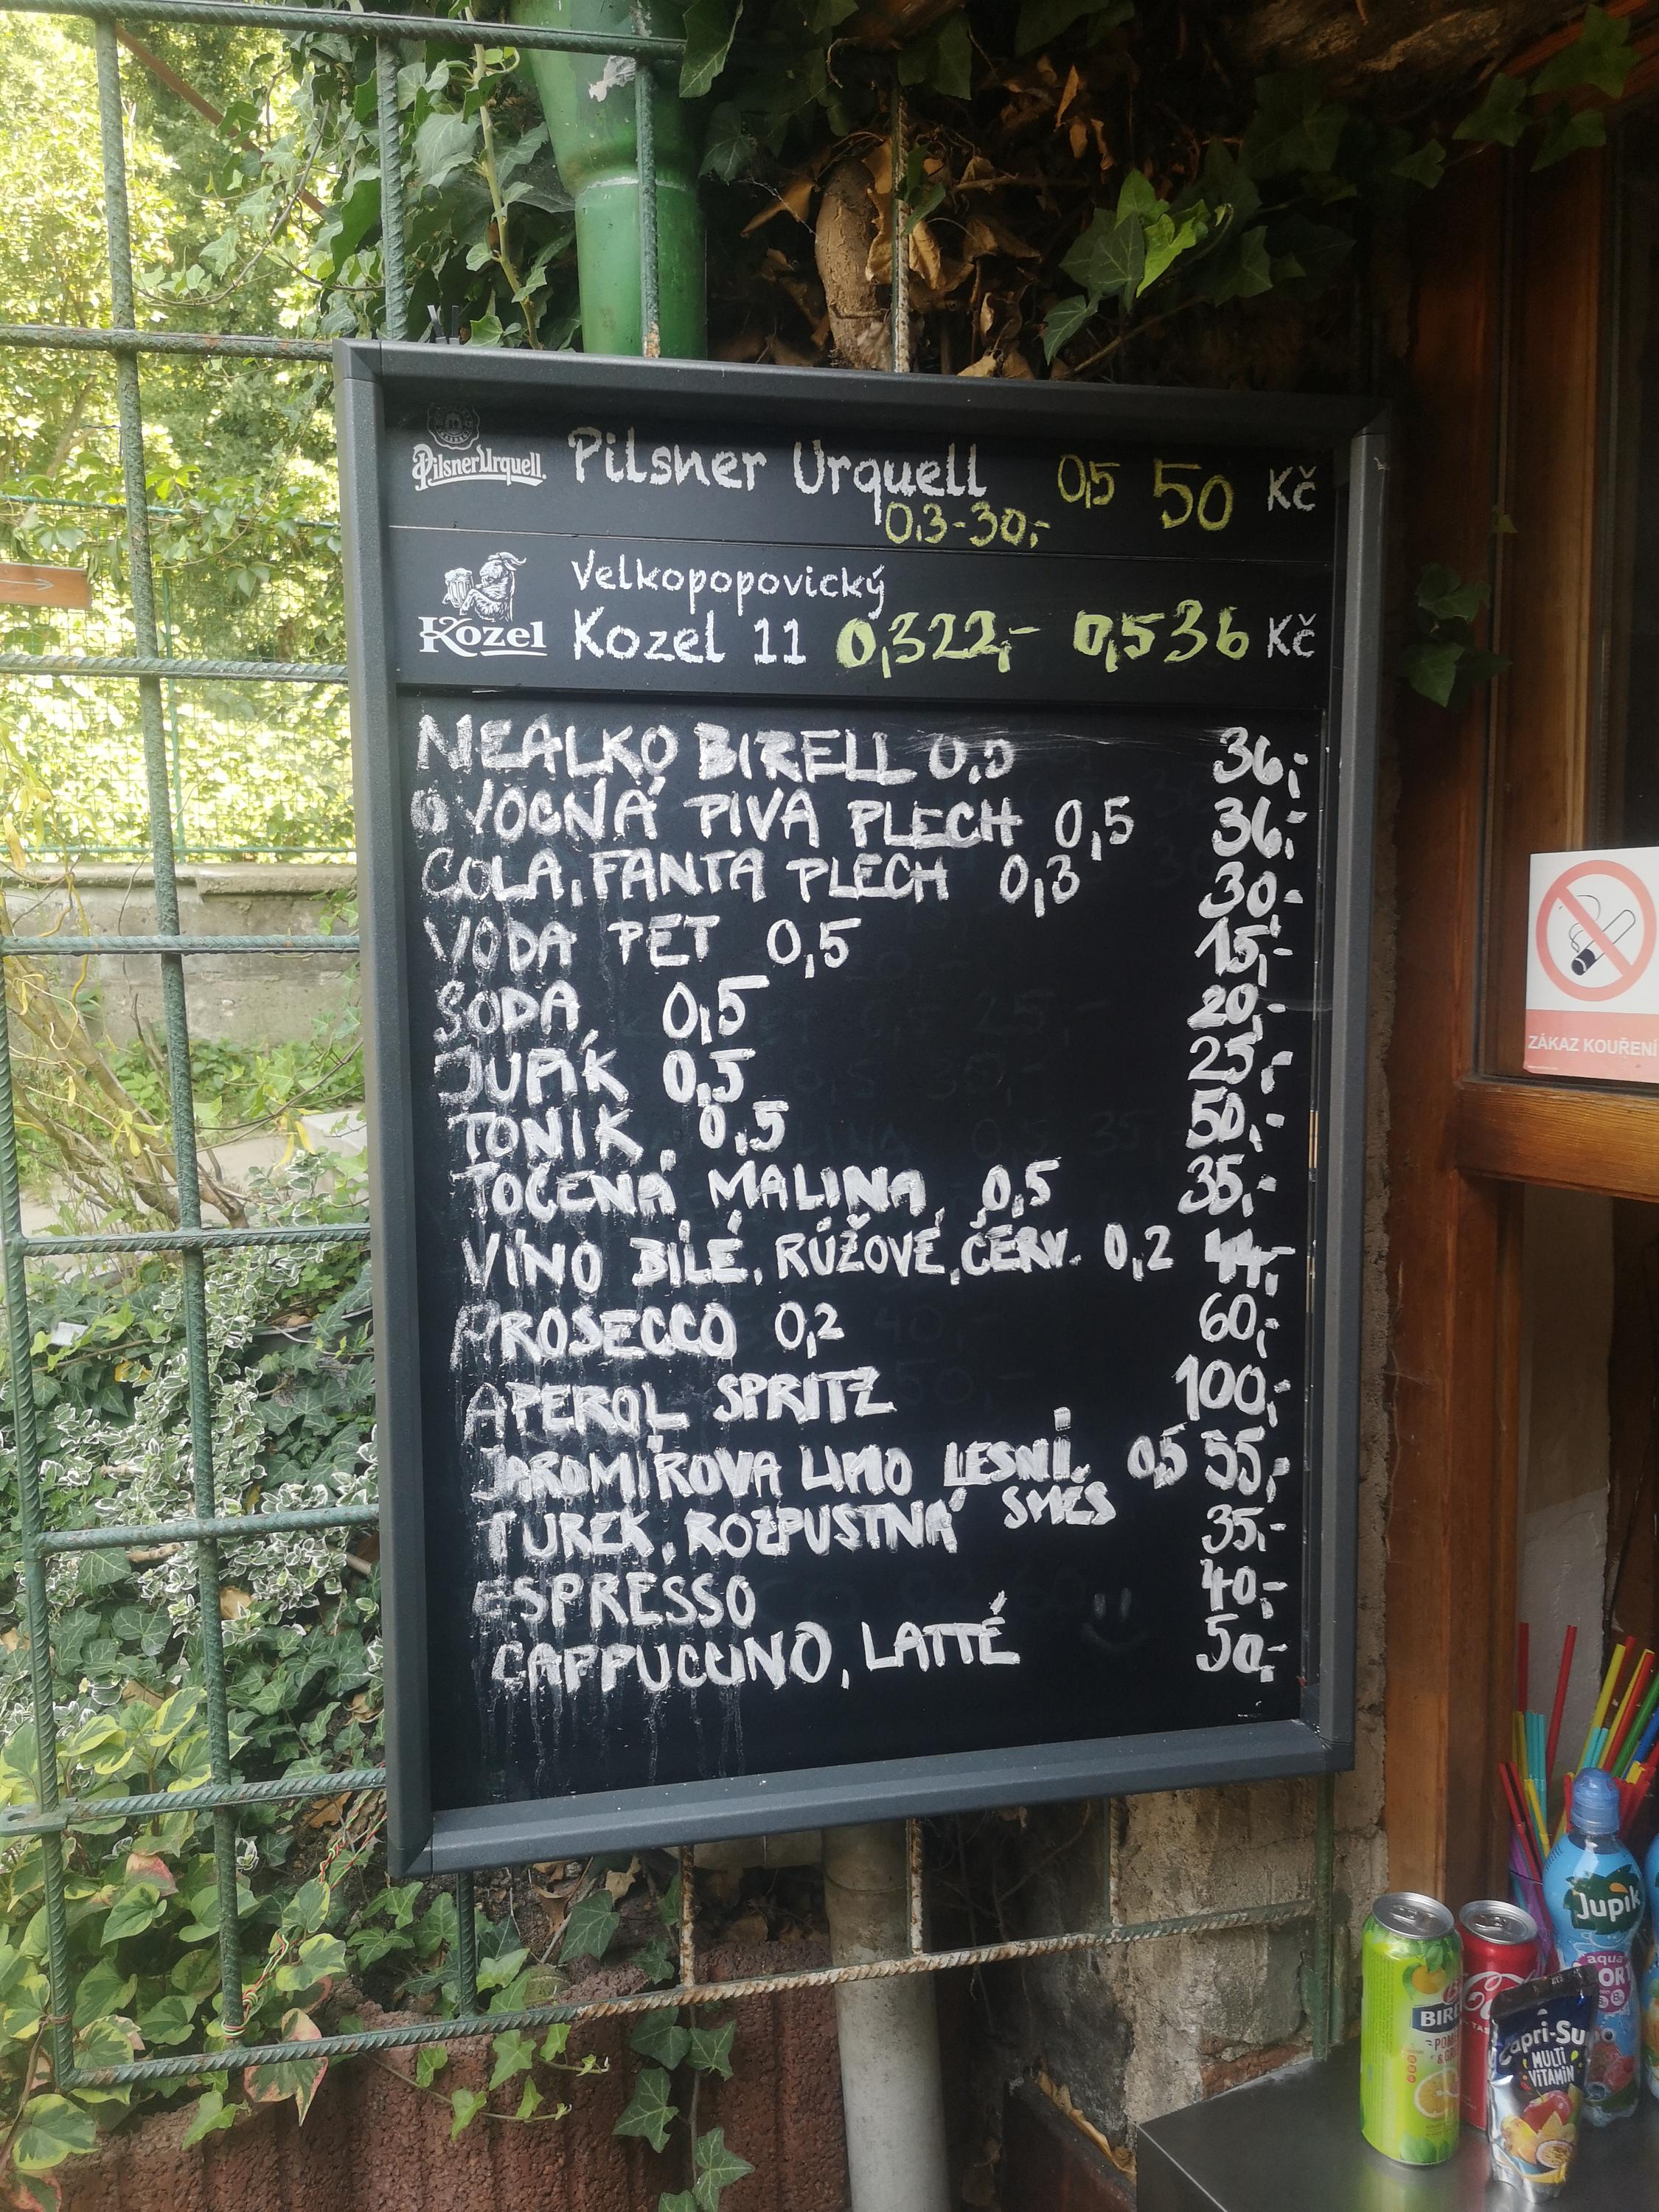 PilsnerUrquell. Pilsner Urquell 0,5 50 Kč
0,3-30,-
Velkopopovický
Kozel Kozel 11 0,322,- 0,536 Kč
NEALKO BIRELL 0,5 36,-
OVOCNÁ PIVA PLECH 0,5 36,-
COLA, FANTA PLECH 0,3 30,-
VODA PET 0,5 15,-
SODA 0,5 20,-
JUPÍK 0,5 25,-
TONIK 0,5 50,-
TOČENÁ MALINA 0,5 35,-
VÍNO BÍLÉ, RŮŽOVÉ, ČERV. 0,2 44,-
PROSECCO 0,2 60,-
APEROL SPRITZ 100,-
JAROMÍROVA LIMO LESNÍ 0,5 55,-
SMĚS
TUREK, ROZPUSTNÁ 35,-
ESPRESSO 40,-
CAPPUCCINO, LATTÉ 50,-
ZÁKAZ KOUŘENÍ
Jupík
aqua
Capri-Sun
MULTI
VITAMIN